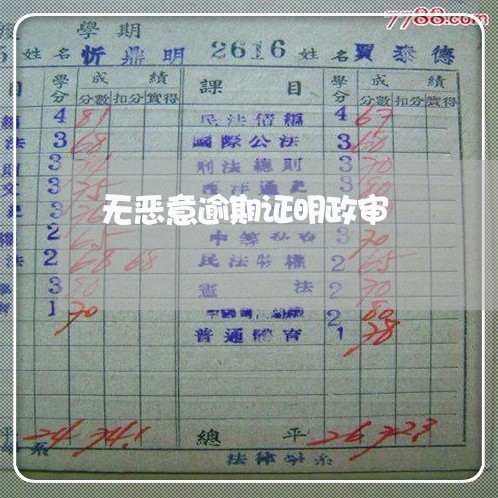 7788.com
學期
姓名 忻鼎明 2616 姓名 賈泰德
目 學分 成績 課目 學分 成績
分數 扣分 實得 分數 扣分 實得
4 81 民法債編 4 67
法 3 68 國際公法 3 60
3 刑法總則 3 70
文 3 75 西洋通史 3 80
3
無恶意逾期证明政审
2 65 3 70
法 2 68 68 民法物權 2 65
3 80 憲法 2 70
1 70 2 80
普通體育 1 78
平 24 74.1 總平 26 72.3
系 法律學系